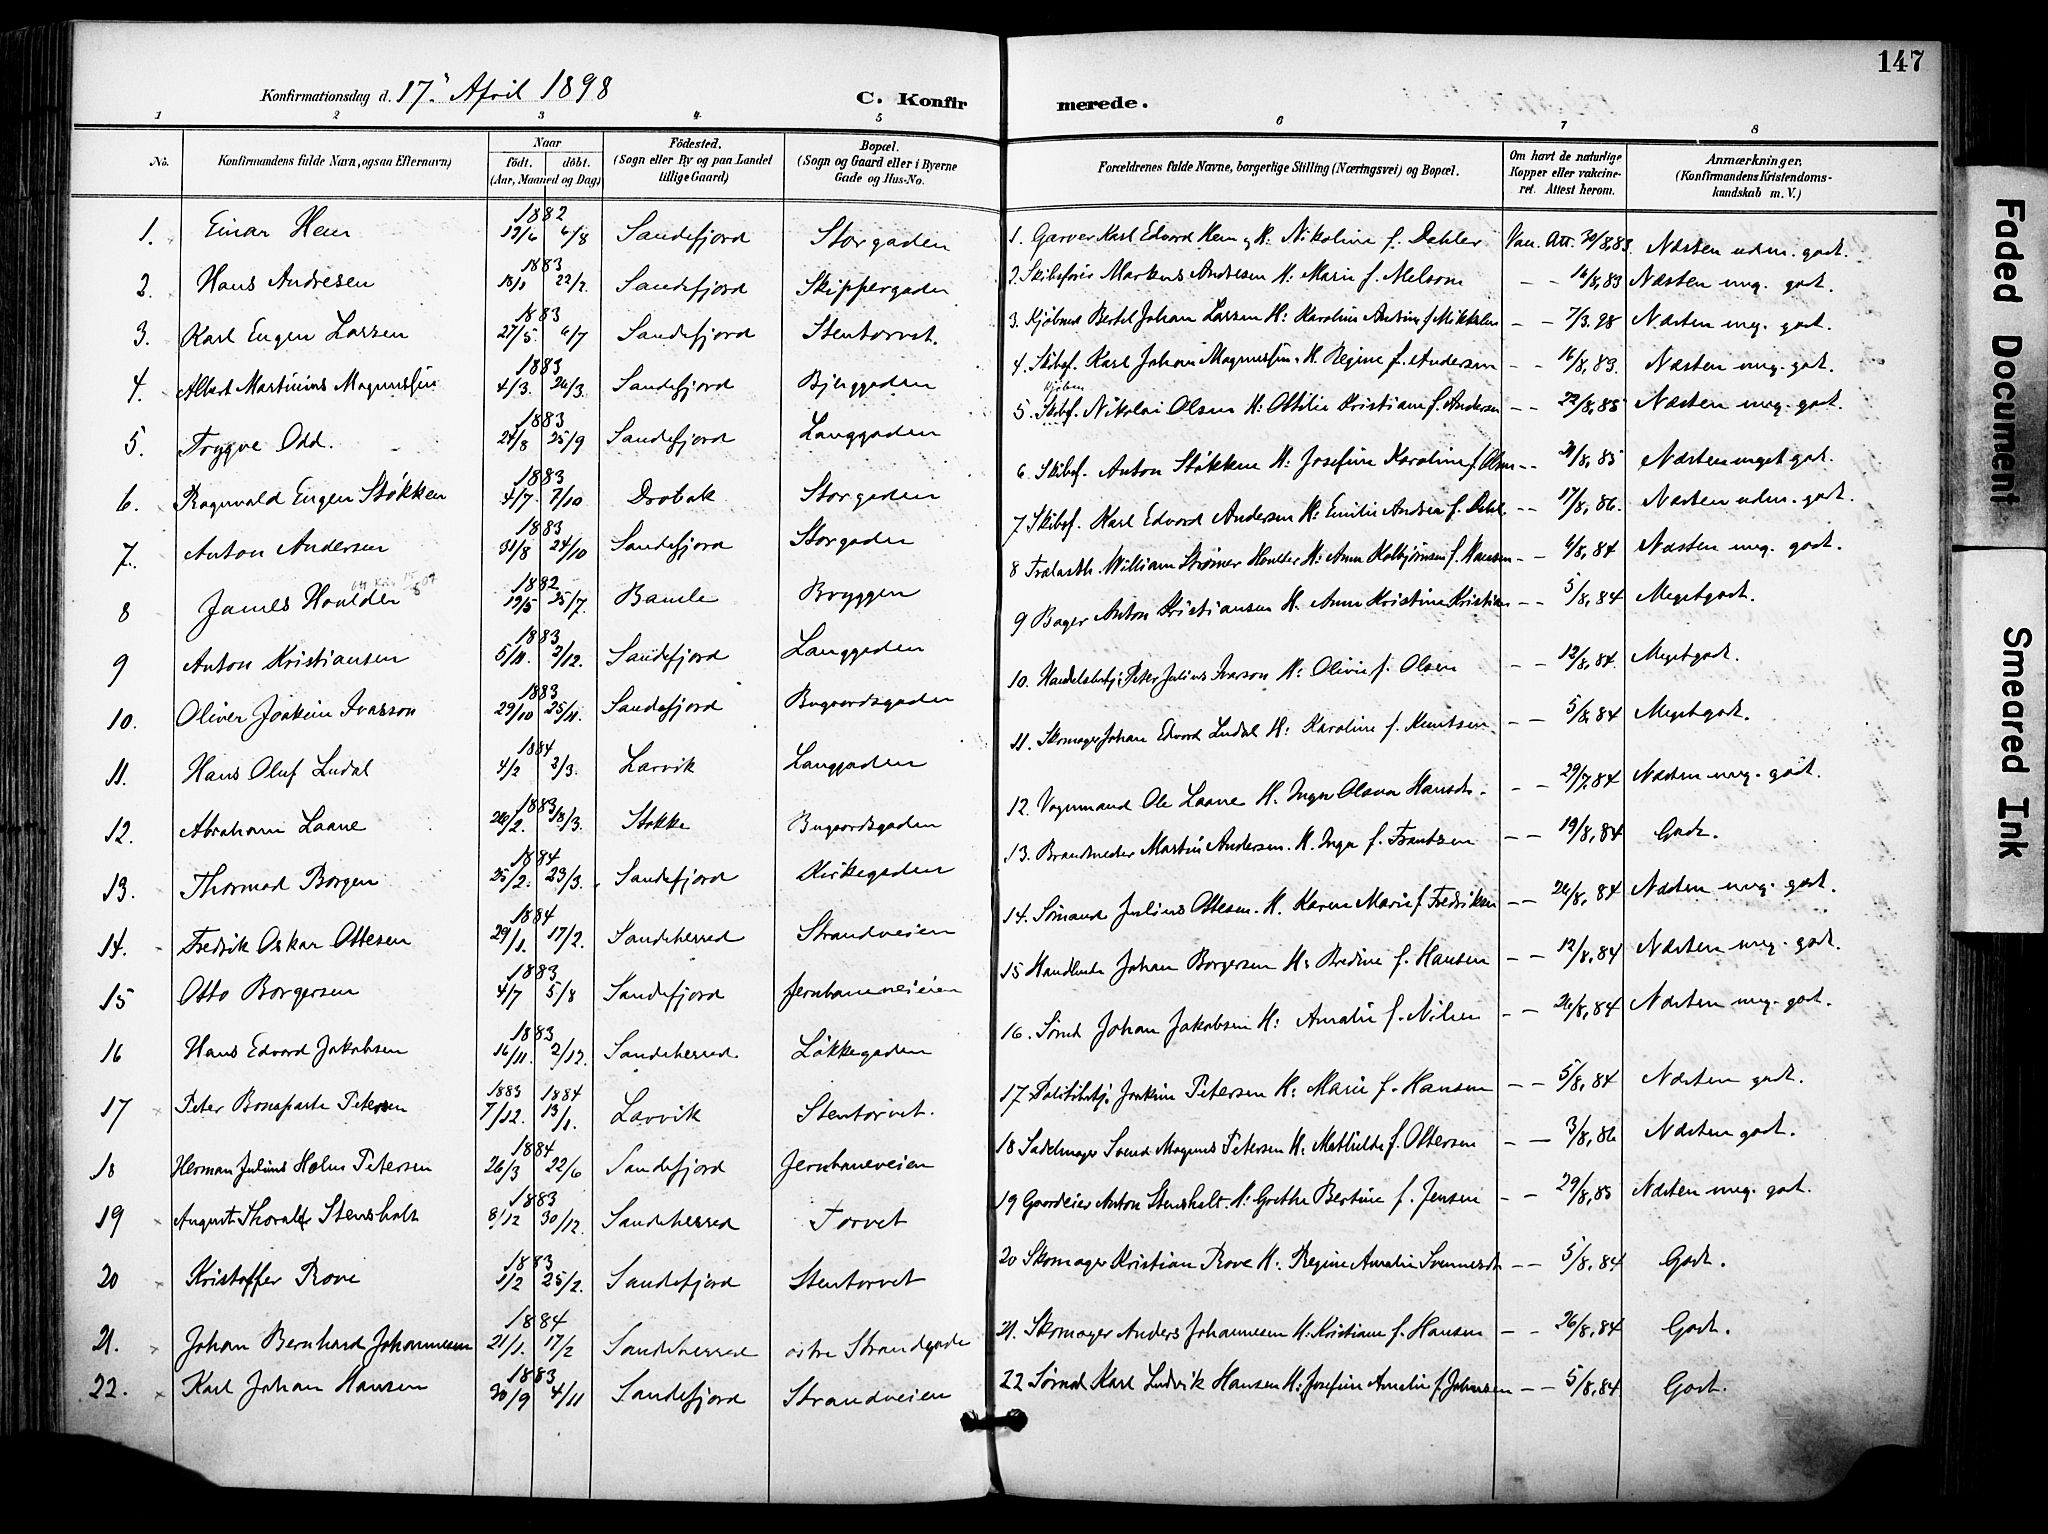 147
Konfirmationsdag d. 17. April 1898
C. Konfirmerede.
1 2 3 4 5 6 7 8
No. Konfirmandens fulde Navn, ogsaa Efternavn) Naar født. døbt. (Aar, Maaned og Dag) Fødested. (Sogn eller By og paa Landet tillige Gaard) Bopæl. (Sogn og Gaard eller i Byerne Gade og Hus-No. Forældrenes fulde Navne, borgerlige Stilling (Næringsvei) og Bopæl. Om havt de naturlige Kopper eller vakcineret. Attest herom. Anmærkninger. (Konfirmandens Kristendomskundskab m. V.)
1. Einar Hem 1882 19/6 6/8 Sandefjord Storgaden 1. Garver Karl Edvard Hem og H. Nikoline f. Dahler Vac. Att. 30/8,83 Næsten udm. godt.
2. Hans Andresen 1883 22/2 Sandefjord Skippergaden 2. Skibsfører Markus Andresen H. Marie f. Melsom - - 16/8,83 Næsten meg. godt.
3. Karl Eugen Larsen 1883 27/5. 6/7 Sandefjord Stentorvet. 3. Kjøbmd Bertel Johan Larsen H: Karoline f. Mikkelsen - - 7/3.98 Næsten meg. godt.
4. Albert Martinius Magnussen 1883 4/3. 26/3. Sandefjord Bjerggaden 4. Skibsf. Karl Johan Magnussen. H. Regine f. Andersen - - 16/8,83. Næsten meg. godt.
5. Trygve Odd. 1883 24/8 25/9 Sandefjord Langgaden 5. Skibsf. Nikolai Olsen H: Ottilie Kristiane f. Andersen - - 22/8,85 Næsten meg. godt.
6. Ragnvald Eugen Støkken 1883 4/7. 7/10 Drøbak Storgaden 6 Skibsf. Anton Støkken H. Josefine Karoline f. Olsen - - 31/8,85 Næsten meget godt.
7. Anton Andersen 1883 31/8 24/10 Sandefjord Storgaden 7 Skibsf. Karl Edvard Andersen H: Emilie Andrea f. Dahl - - 17/8,86. Næsten udm. godt.
8 James Houlder 1882 19/5 25/7. Bamle Bryggen 8 Trælasth. William Strømer Houlder H: Anna Kolbjørnsen f. Hansen - - 6/8,84 Næsten meg. godt.
9 Anton Kristiansen 1883 5/11. 2/12. Sandefjord Langgaden 9 Bager Anton Kristiansen H. Anne Kristine Kristian - - 5/8,84 Meget godt.
10. Oliver Joakim Ivarson 1883 29/10 25/11. Sandefjord Bugaardsgaden 10. Handelsbetj. Peter Julius Ivarson H: Olivie f. Olsen - - 12/8,84. Meget godt.
11. Hans Oluf Ludal 1884 4/2 2/3. Larvik Langgaden 11. Skomager Johan Edvard Ludal H: Karoline f. Knutsen - - 5/8,84 Meget godt.
12. Abraham Laane 1883 26/2. 18/3. Stokke Bugaardsgaden 12. Vognmand Ole Laane H. Inger Olava Hansdt. - - 29/7,84 Næsten meg. godt.
13. Thormod Borgen 1884 25/2. 23/3. Sandefjord Kirkegaden 13. Brandmester Martin Andersen. H. Inga f. Frantzen - - 19/8,84 Godt.
14. Fredrik Oskar Ottesen 1884 29/1. 17/2. Sandeherred Strandveien 14. Sømand Julius Ottesen. H. Karen Marie f. Fredriksen - - 26/8,84 Næsten meg. godt.
15 Otto Borgersen 1883 4/7 5/8 Sandefjord Jernbaneveien 15 Johan Borgersen H: Bredine f. Hansen - - 12/8,84 Næsten meg. godt.
16 Hans Edvard Jakobsen 1883 16/11. 2/12. Sandeherred. Løkkegaden 16. Sømd Johan Jakobsen H: Amalie f. Nilsen - - 26/8,84 Næsten meg. godt.
17 Peter Bonaparte Petersen 1883 7/12. 1884 13/1. Larvik Stentorvet. 17 Politibetj. Joakim Petersen H: Marie f. Hansen - - 5/8,84 Næsten godt.
18 Herman Julius Holm Petersen 1884 26/3 22/6 Sandefjord Jernbaneveien 18 Sadelmager Svend Magnus Petersen H: Mathilde f. Ottersen - - 3/8,86 Næsten godt.
19 August Thoralf Stensholt 1883 8/12 30/12. Sandeherred Torvet 19 Gaardeier Anton Stensholt. H: Grethe Bertine f. Jensen - - 29/8,85 Næsten meg. godt.
20 Kristoffer Rove 1883 1/2 25/2. Sandefjord Stentorvet 20 Skomager Kristian Rove H: Regine Amalie - - 5/8,84 Godt.
21. Johan Bernhard Johannesen 1884 21/1. 17/2 Sandeherred østre Strandgade 21. Skomager Anders Johannesen H. Kristiane f. Hansen - - 26/8,84 Godt.
22. Karl Johan Hansen 1883 30/9 4/11 Sandefjord Strandveien 22 Sømd Karl Ludvik Hansen H: Josefine Amalie f. Johnsen - - 5/8,84 Godt.
Faded Document
Smeared Ink